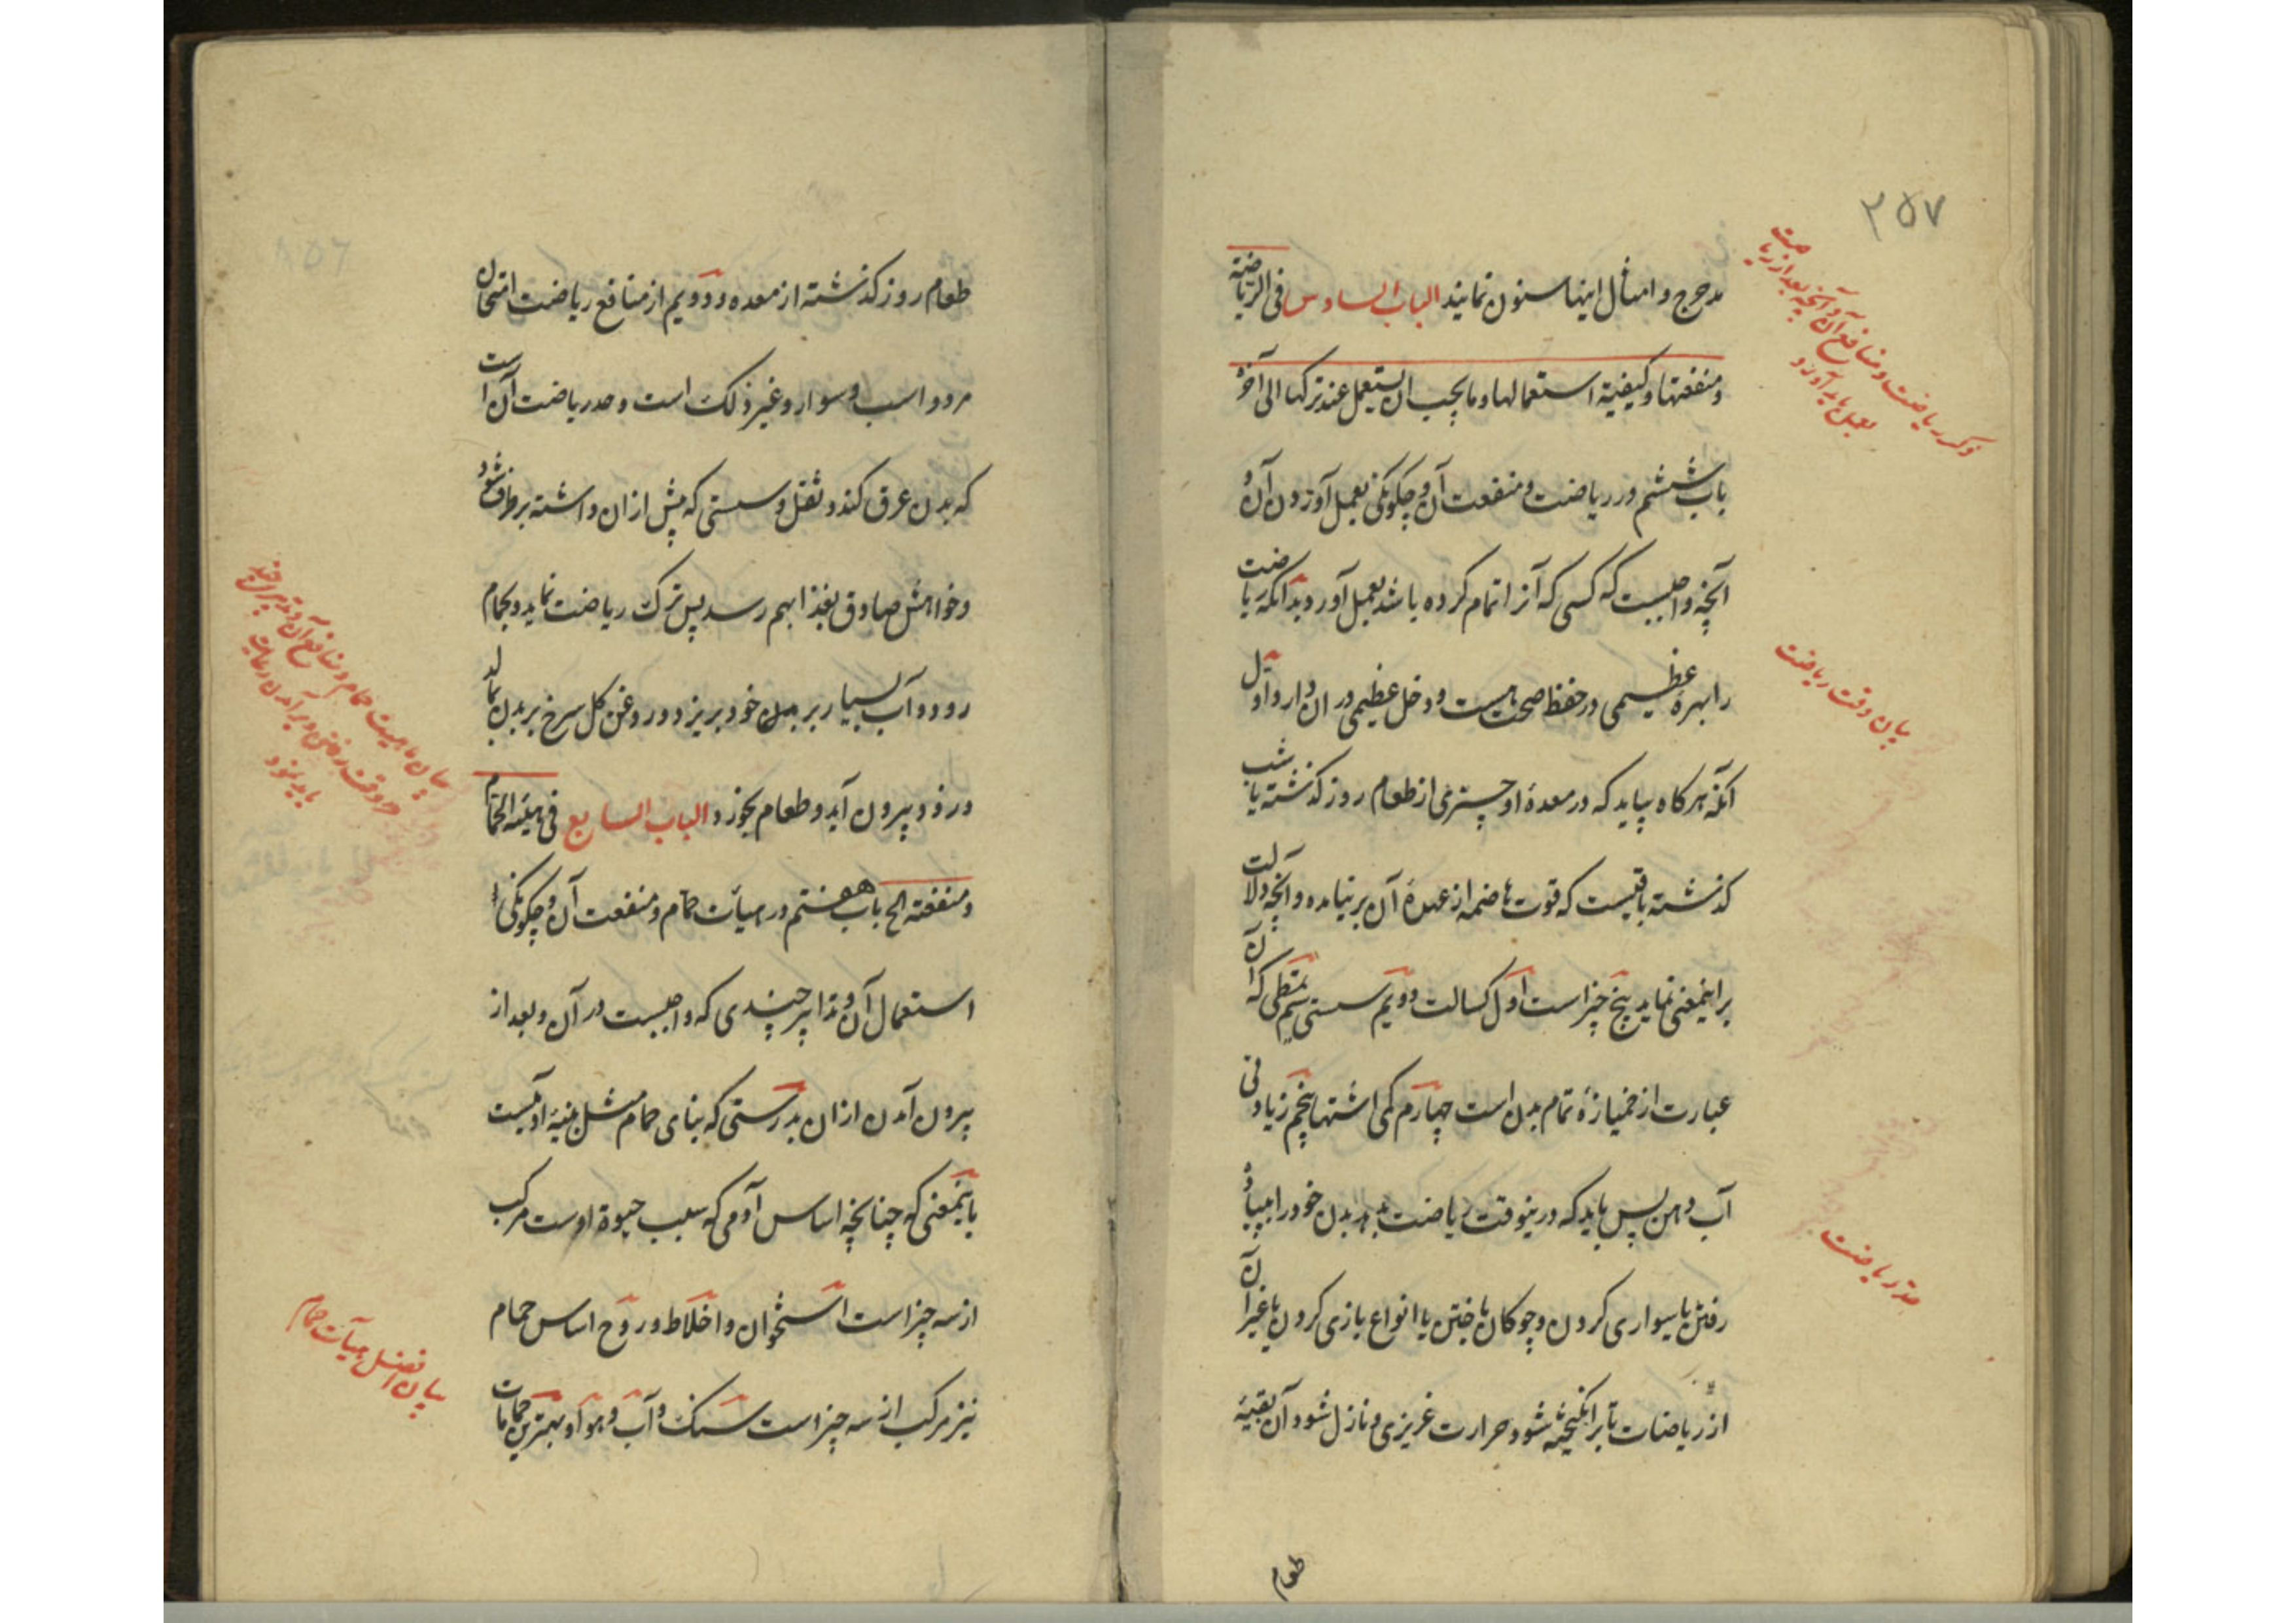 ۲۵۷
مدحرج و امثال اینها سنون نمایند الباب السادس فی الریاضة
و منفعتها و کیفیة استعمالها و ما یجب ان یستعمل عند ترکها الی آخره
باب ششم در ریاضت و منفعت آن و چکونکی بعمل آوردن آن و
آنچه واجبست که کسی که آنرا تمام کرده باشد بعمل آورد بدانکه ریاضت
را بهرۀ عظیمی در حفظ صحت هست و دخل عظیمی در ان دارد و اول
آنکه هر کاه بیابد که در معدۀ او چیزی از طعام روز کذشته یا شب
کذشته باقیست که قوت هاضمه از عهدۀ آن بر نیامده و آنچه دلالت
بر اینمعنی نماید پنج چیز است اول کسالت دویم سستی سیم تمطی که آن
عبارت از خمیازۀ تمام بدن است چهارم کمی اشتها پنجم زیادتی
آب دهن پس باید که درینوقت ریاضت بدهد بدن خود را به پیاده
رفتن یا سواری کردن و چوکان باختن یا انواع بازی کردن یا غیر آن
از ریاضات تا بر انکیخته شود حرارت غریزی و نازل شود آن بقیۀ
طعام
ذکر ریاضت و منافع آن و آنچه بعد از ریاضت
بعمل باید آورد
بیان وقت ریاضت
حد ریاضت
طعام روز کذشته از معده و دویم از منافع ریاضت امتحان
مرد و اسب و سوار و غیر ذلک است و حد ریاضت آن است
که بدن عرق کند و ثقل و سستی که پیش از ان داشته بر طرف شود
و خواهش صادق بغذا بهم رسد پس ترک ریاضت نماید و بحمام
رود و آب بسیار بر بدن خود بریزد و روغن کل سرخ بر بدن بمالد
و زود بیرون آید و طعام بخورد الباب السابع فی هیئة الحمام
و منفعته الخ باب هفتم در هیأت حمام و منفعت آن و چکونکی
استعمال آن و تدابیر چندی که واجبست در آن و بعد از
بیرون آمدن از ان بدرستی که بنای حمام مثل بنیۀ آدمیست
باینمعنی که چنانچه اساس آدمی که سبب حیوة اوست مرکب
از سه چیز است استخوان و اخلاط و روح اساس حمام
نیز مرکب از سه چیز است سنک و آب و هوا و بهترین حمامات
بیان ماهیت حمام و منافع آن و تدبیر
در وقت رفتن و بر آمدن رعایت
باید نمود
بیان افضل هیآت حمام